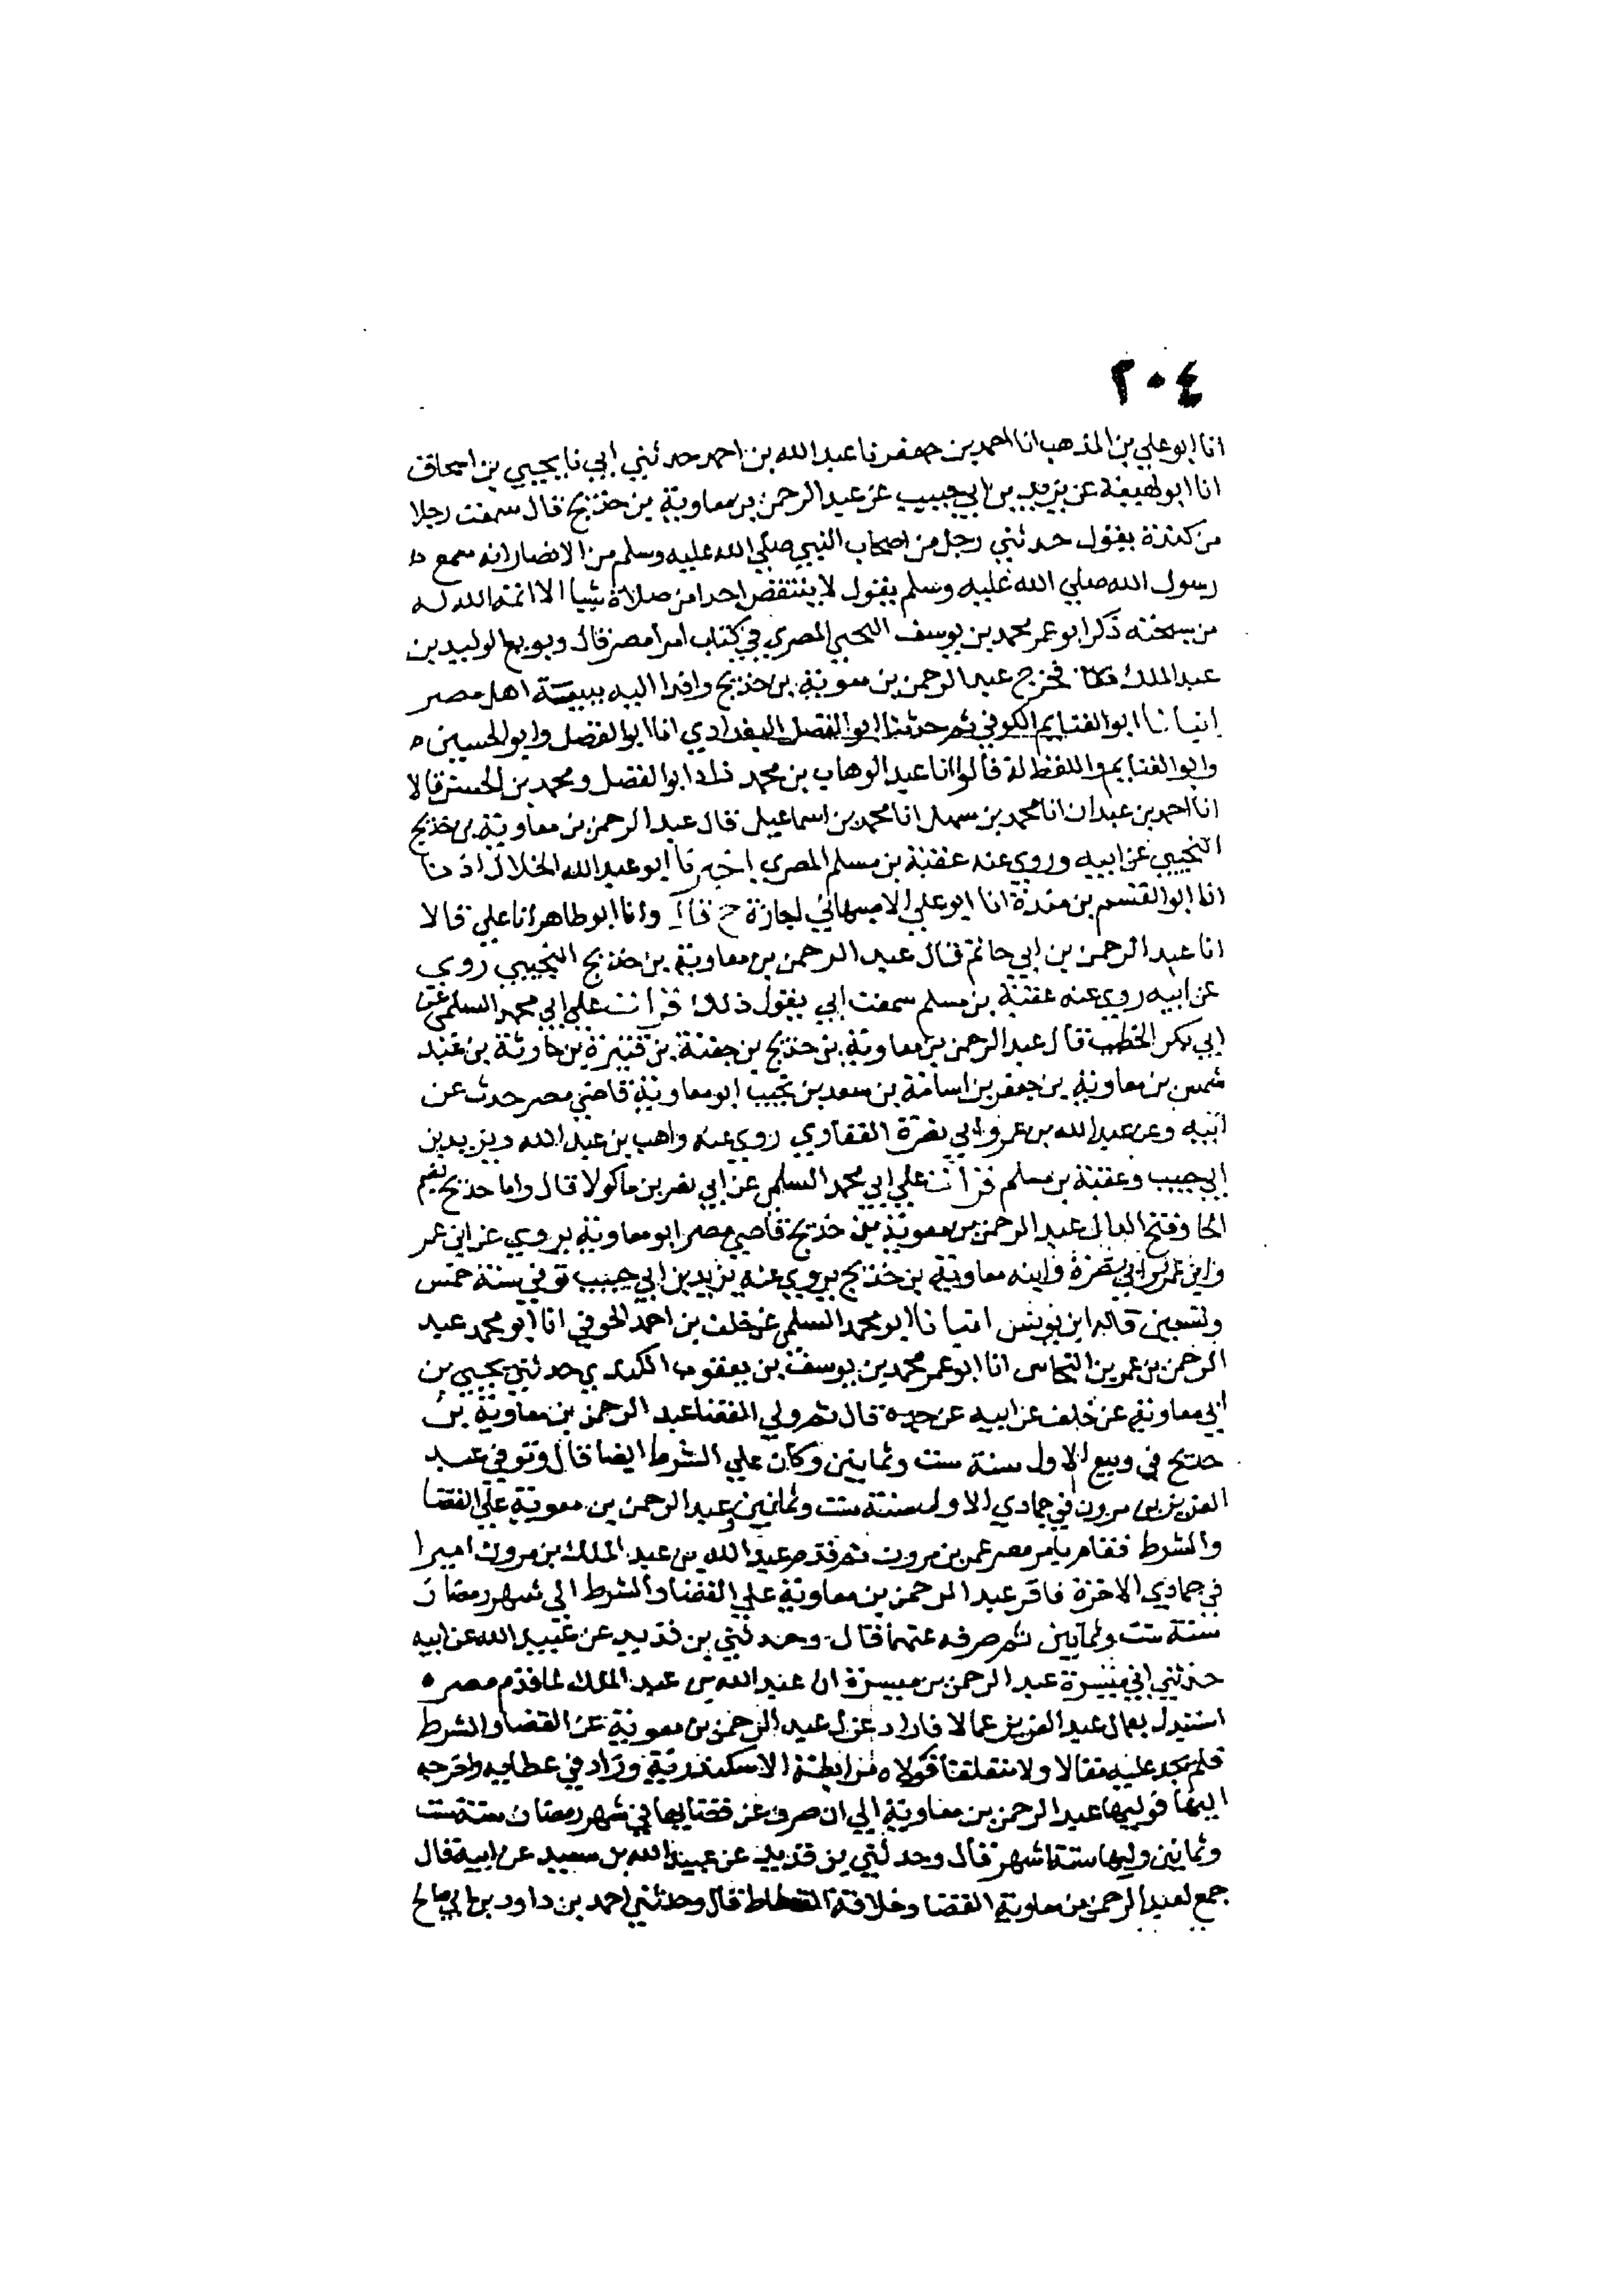 ٢٠٤
انا ابو علي بن المذهب انا احمد بن جعفر نا عبد الله بن احمد حدثني ابي نا يحيي بن اسحاق
انا ابو لهيعة عن يزيد بن ابي حبيب عن عبد الرحمن بن معاوية بن حديج قال سمعت رجلا
من كندة يقول حدثني رجل من اصحاب النبي صلي الله عليه وسلم من الانصار انه سمع
رسول الله صلي الله عليه وسلم يقول لا ينتقص احد من صلاة شيا الا اتمه الله له
من سبحته ذكر ابو عمر محمد بن يوسف المصري في كتاب امرا مصر قال وبويع الوليد بن
عبد الملك فخرج عبد الرحمن بن معوية بن حديج وافدا اليه ببيعة اهل مصر
انبانا ابو الغنايم الكوفي ثم حدثنا ابو الفضل البغدادي انا ابو الفضل وابو الحسين
وابو الغنايم واللفظ له قالوا انا عبد الوهاب بن محمد زاد ابو الفضل ومحمد بن الحسن قالا
انا احمد بن عبدان انا محمد بن سهل انا محمد بن اسماعيل قال عبد الرحمن بن معاوية بن حديج
التجيبي عن ابيه وروي عنه عقبة بن مسلم المصري اخبرنا ابو عبد الله الخلال اذنا
انا ابو القسم بن مندة انا ابو علي الاصبهاني اجازة ح قال وانا ابو طاهر انا علي قالا
انا عبد الرحمن بن ابي حاتم قال عبد الرحمن بن معاوية بن حديج التجيبي روي
عن ابيه روي عنه عقبة بن مسلم سمعت ابي يقول ذلك قرات علي ابي محمد السلمي عن
ابي بكر الخطيب قال عبد الرحمن بن معاوية بن حديج بن جفنة بن قنبرة بن حارثة بن عبد
شمس بن معاوية بن جعفر بن اسامة بن سعد بن تجيب ابو معاوية قاضي مصر حدث عن
ابيه وعن عبد الله بن عمرو وابي بصرة الغفاري روي عنه واهب بن عبد الله ويزيد بن
ابي حبيب وعقبة بن مسلم قرات علي ابي محمد السلمي عن ابي نصر بن ماكولا قال واما حديج بضم
الحا وفتح الدال عبد الرحمن بن معوية بن حديج قاضي مصر ابو معاوية يروي عن ابن عمر
وابن عمرو وابي بصرة وابيه معاوية بن حديج يروي عنه يزيد بن ابي حبيب توفي سنة خمس
وتسعين قاله ابن يونس انبانا ابو محمد السلمي عن خلف بن احمد الحوفي انا ابو محمد عبد
الرحمن بن عمر بن النحاس انا ابو عمر محمد بن يوسف بن يعقوب الكندي حدثني يحيي بن
ابي معاوية عن خلف عن ابيه عن جده قال ثم ولي القضا عبد الرحمن بن معاوية بن
حديج في ربيع الاول سنة ست وثمانين وكان علي الشرط ايضا قال وتوفي عبد
العزيز بن مرون في جمادي الاول سنة ست وثمانين وعبد الرحمن بن معوية علي القضا
والشرط فقام بامر مصر عمر بن مرون ثم قدم عبد الله بن عبد الملك بن مرون اميرا
في جمادي الاخرة فاقر عبد الرحمن بن معاوية علي القضا والشرط الي شهر رمضان
سنة ست وثمانين ثم صرفه عنهما قال وحدثني بن قديد عن عبيد الله عن ابيه
حدثني ابن ميسرة عبد الرحمن بن ميسرة ان عبد الله بن عبد الملك لما قدم مصر
استبدل بعمال عبد العزيز عمالا فاراد عزل عبد الرحمن بن معوية عن القضا والشرط
فلم يجد عليه مقالا ولا متعلقا فولاه مرابطة الاسكندرية وزاد في عطايه واخرجه
اليها فوليها عبد الرحمن بن معاوية الي ان صرف عن قضايها في شهر رمضان سنة ست
وثمانين وليها ستة اشهر قال وحدثني بن قديد عن عبيد الله بن سعيد عن ابيه قال
جمع لعبد الرحمن بن معاوية القضا وخلافة الفسطاط قال وحدثني احمد بن داود بن ابي صالح